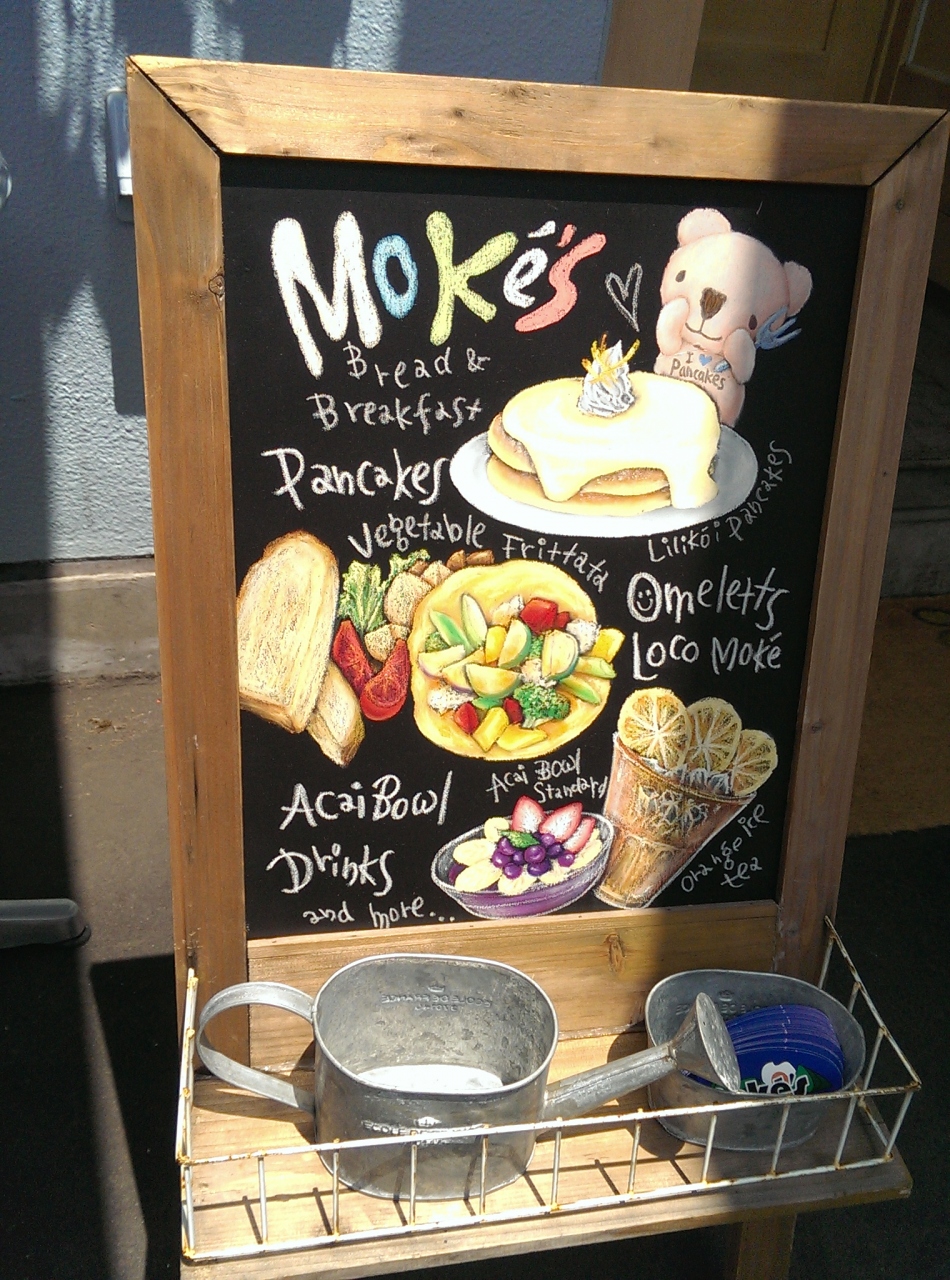 Moké's
Bread &
Breakfast
I ♥ Pancakes
Pancakes
Lilikói Pancakes
Vegetable Frittata
Omeletts
Loco Moké
Acai Bowl
Acai Bowl
Standard
Drinks
and more...
Orange ice
tea